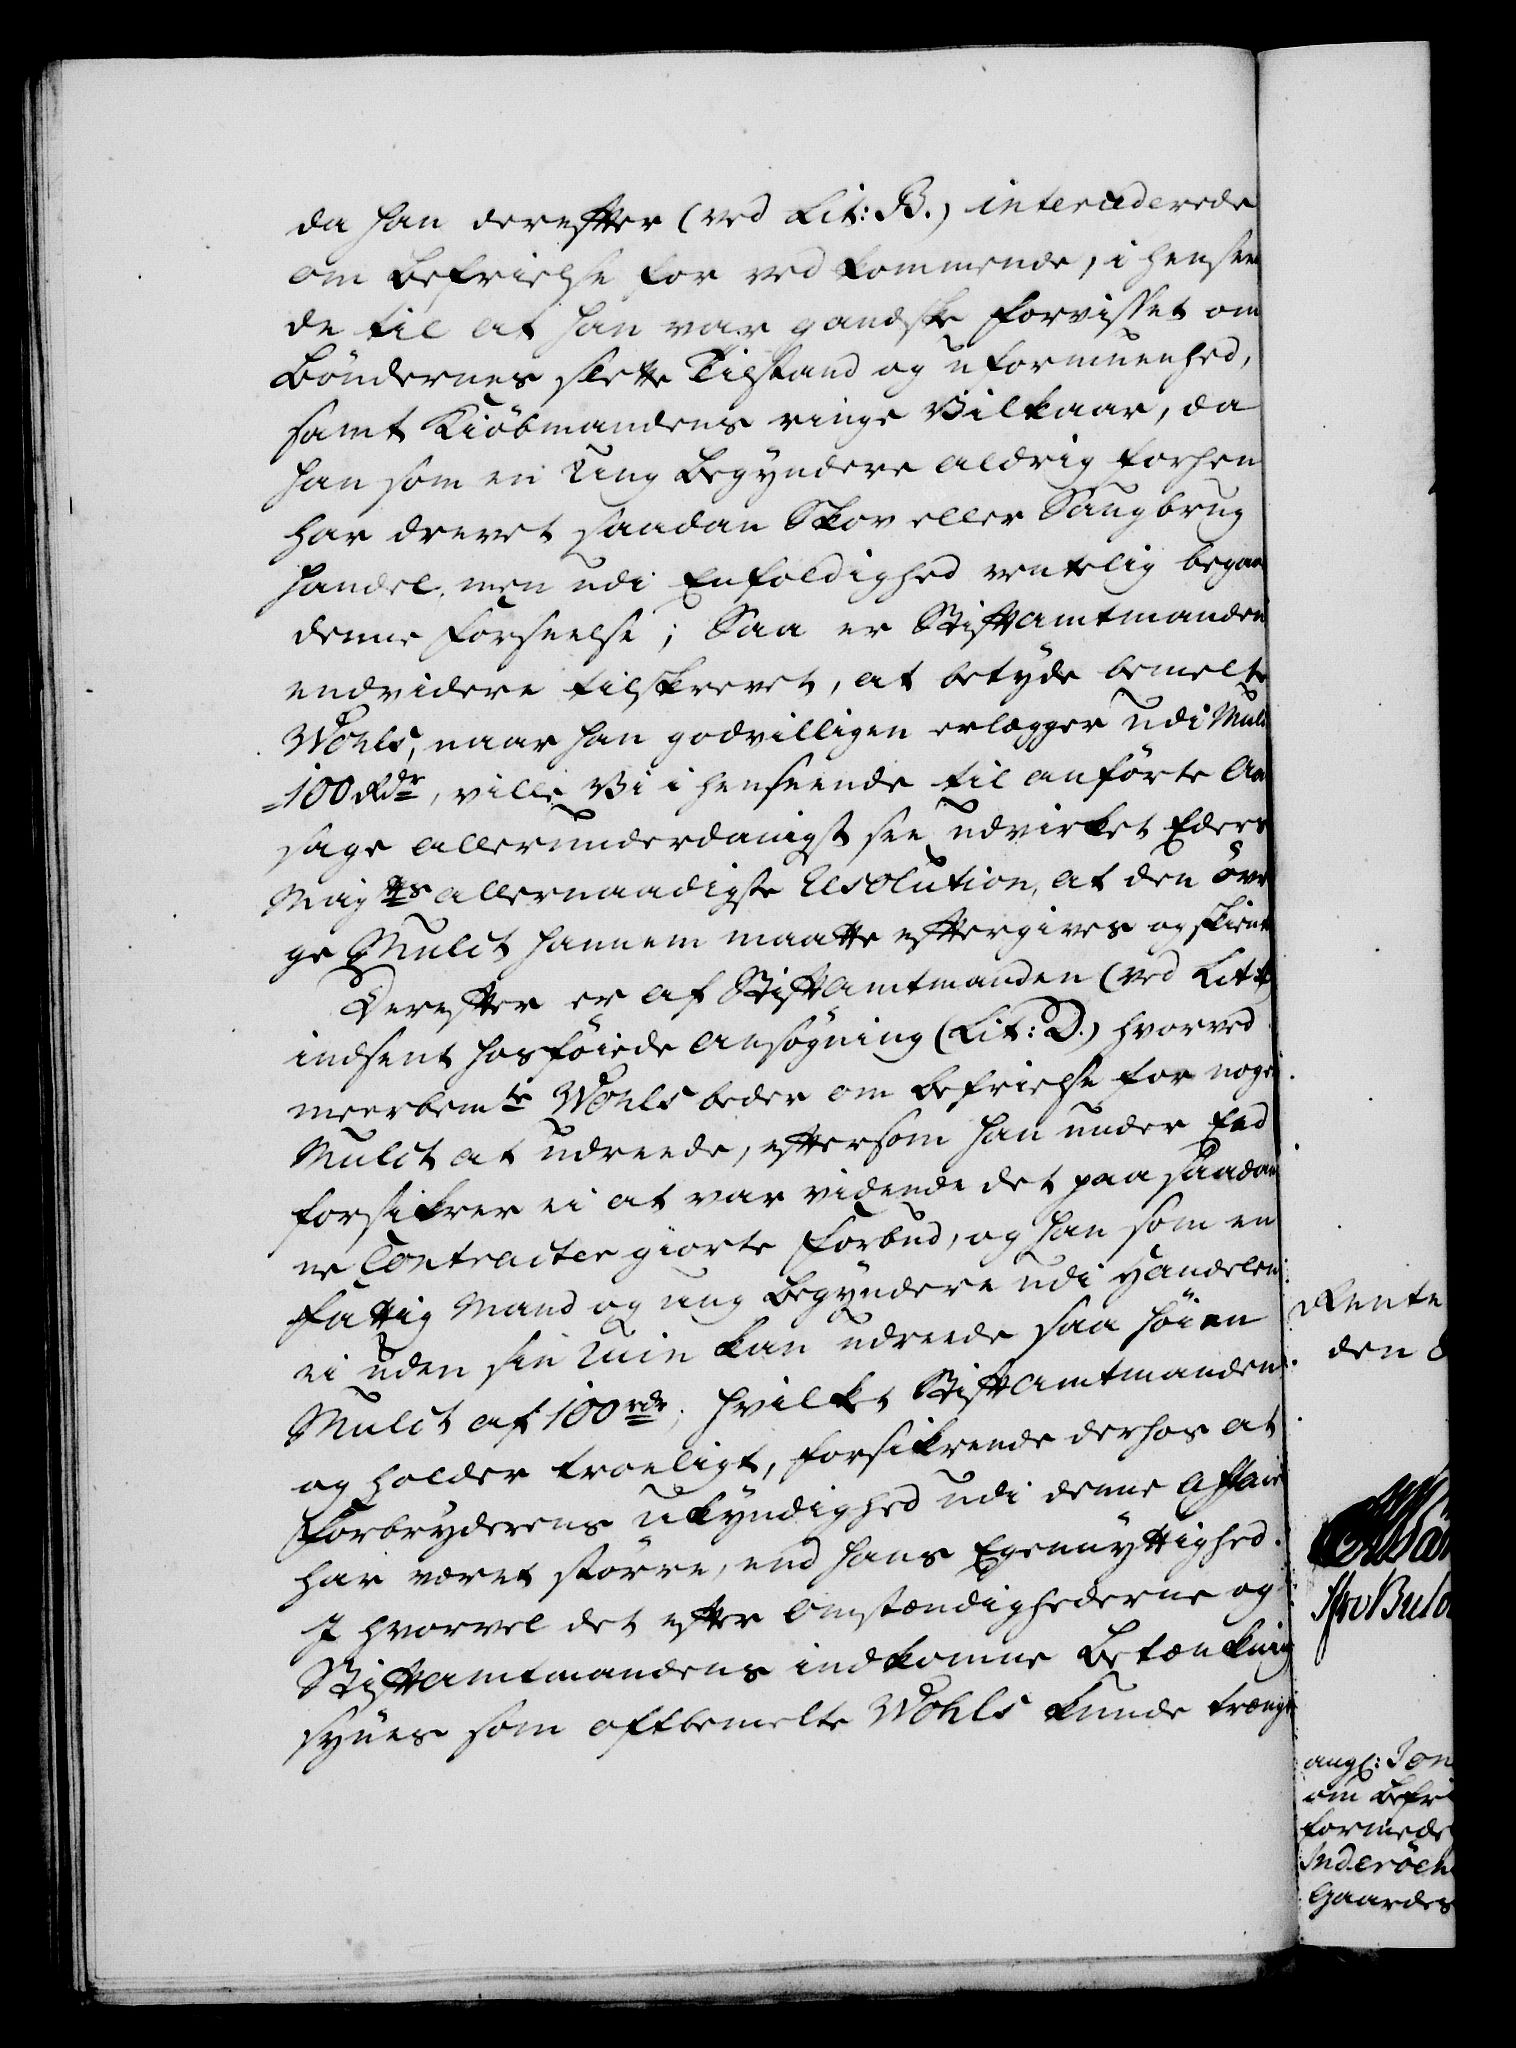 da han derefter (ved Lit: B.) intercederede
om befrielse for vedkommende, i hensee
de til at han var gandske forvisset om
Böndernes slette Tilstand og uformuenhed,
samt Kiöbmandens ringe Vilkaar, da
han som en Ung begyndere aldrig forhen
har drevet saadan Skov eller Saugbrug
handel, men udi Enfoldighed ventelig begaa
denne forseelse; Saa er Stiftamtmanden
endvidere tilskrevet, at betyde bemelte
Wohls, naar han godvilligen erlægger udi Mul
100 Rdr, ville Vi i henseende til anförte Aa
sage allerunderdanigst see udvirket Eders
Mayts allernaadigste Resolution, at den övr
ge Mulct hannem maatte eftergives og skienk
Derefter er af Stiftamtmanden (ved Litt
indsent hosföiede ansögning (Lit: D.) hvorved
meerbemte Wohls beder om befrielse for noge
Mulct at udreede, eftersom han under Eed
forsikrer ei at var vidende det paa saadan
ne Contracter giorte forbud, og han som en
fattig Mand og ung begyndere udi Handelen
ei uden sin Ruin kan udreede saa höi en
Mulct af 100 rdr, hvilket Stiftamtmanden
og holder troeligt, forsikrende derhos at
Forbryderens ukyndighed udi denne Affaire
har været större, end hans Egennyttighed.
I hvorvel det efter Omstændighederne og
Stiftamtmandens indkomne Betænkning
synes som oftbemelte Wohls kunde trænge
Rente
den 8
angl: Jon
om befri
formede
Inderöen
Gaardes